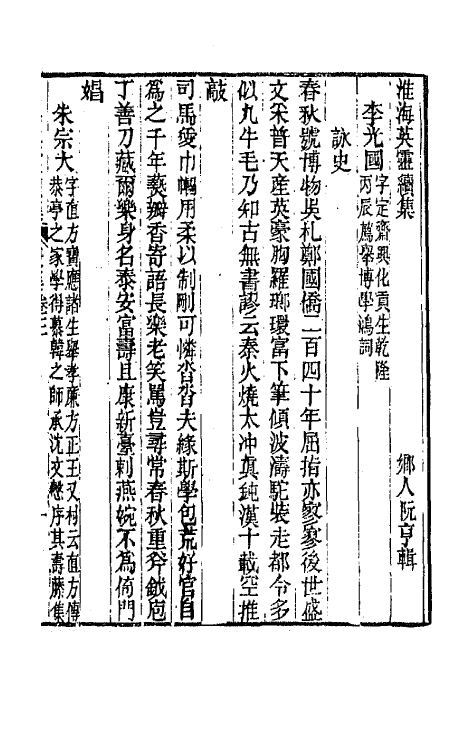 淮海英靈續集
鄉人阮亨輯
李光國字定齋興化貢生乾隆丙辰薦舉博學鴻詞
詠史
春秋號博物吳札鄭國僑二百四十年屈指亦寥寥後世盛
文采普天產英豪胸羅瑯環富下筆傾波濤駝裝走都令多
似九牛毛乃知古無書謬云秦火燒太冲真鈍漢十載空推
敲
司馬愛巾幗用柔以制剛可憐沓沓夫緣斯學包荒好官自
為之千年爇瓣香寄語長樂老笑罵豈尋常春秋重斧鉞庖
丁善刀藏爾樂身名泰安富壽且康新臺刺燕婉不為倚門
娼
朱宗大字直方寶應諸生舉孝廉方正王又村云直方傳恭亭之家學得慕韓之師承沈文慤序其壽藤集